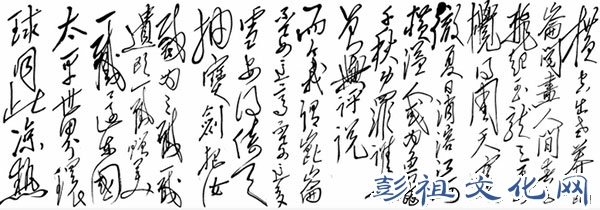 横空出世莽崑
崙阅尽人间春色
飞起玉龙三百万
搅得周天寒
彻夏日消溶江河
横溢人或为鱼鳖
千秋功罪谁人
曾与评说
而今我谓崑崙
不要这高不要这多
雪安得倚天
抽宝劍把汝
裁为三截一截
遗欧一截赠美
一截还东國
太平世界環
球同此凉熱
彭祖文化网